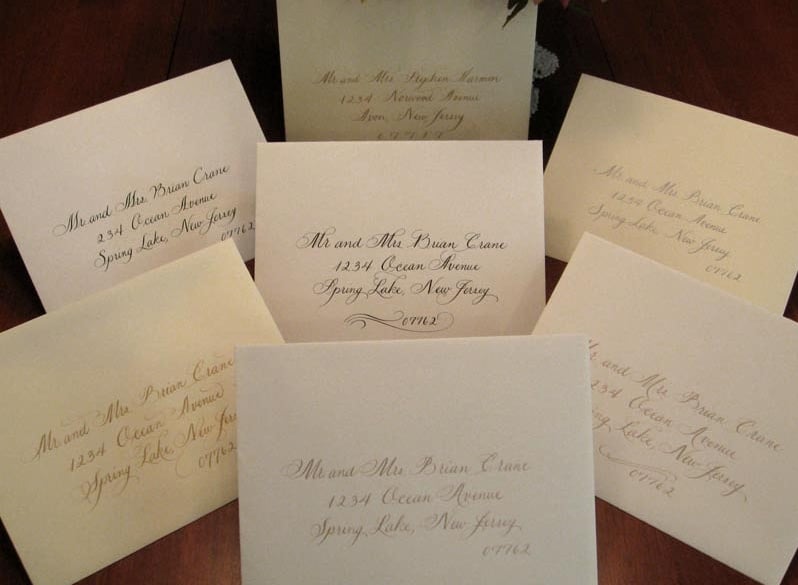 Mr and Mrs Stephen Harmon
1234 Norwood Avenue
Avon, New Jersey
07717
Mr and Mrs. Brian Crane
234 Ocean Avenue
Spring Lake, New Jersey
07762
Mr and Mrs Brian Crane
1234 Ocean Avenue
Spring Lake, New Jersey
07762
Mr and Mrs Brian Crane
1234 Ocean Avenue
Spring Lake, New Jersey
07762
Mr and Mrs Brian Crane
1234 Ocean Avenue
Spring Lake, New Jersey
07762
Mr and Mrs. Brian Crane
1234 Ocean Avenue
Spring Lake, New Jersey
07762
Mr and Mrs Brian Crane
234 Ocean Avenue
Spring Lake, New Jersey
07762